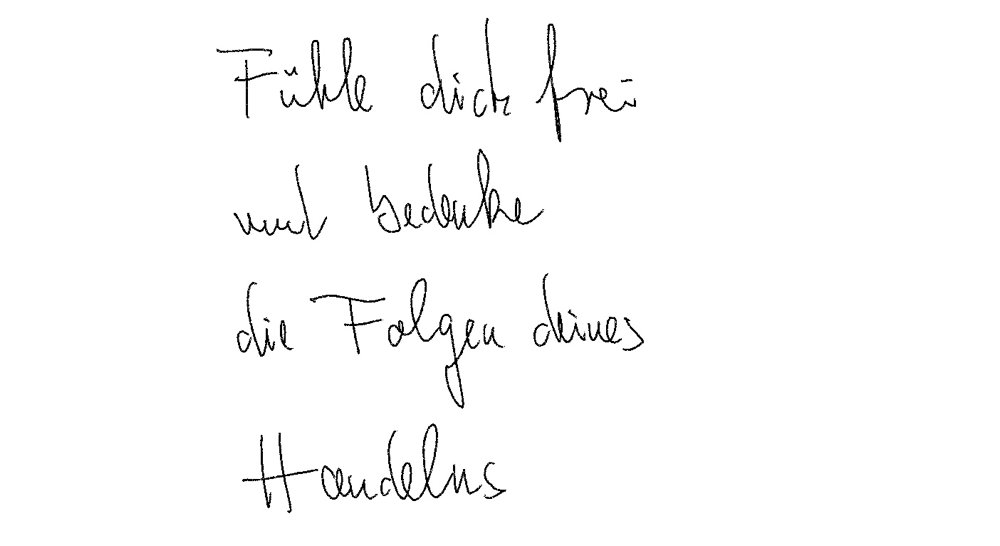 Fühle dich frei
und bedenke
die Folgen deines
Handelns